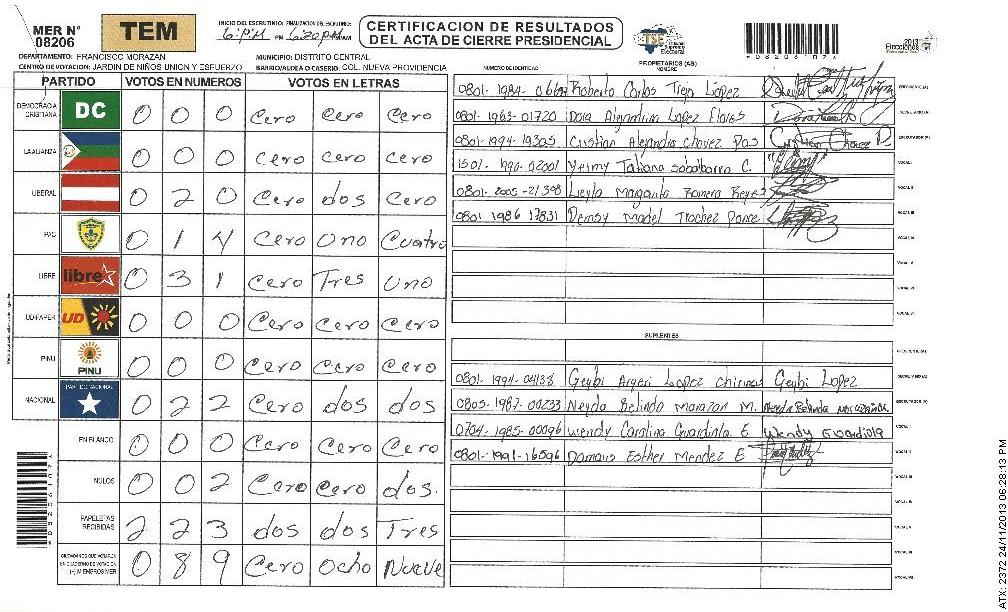 MER N° 08206
TEM
INICIO DEL ESCRUTINIO: FINALIZACION DEL ESCRUTINIO:
6:P.M PM 6:20 PM AM
CERTIFICACION DE RESULTADOS
DEL ACTA DE CIERRE PRESIDENCIAL
TSE
Supremo
Electoral
*08206107*
2013
Elecciones
DEPARTAMENTO: FRANCISCO MORAZAN
MUNICIPIO: DISTRITO CENTRAL
CENTRO DE VOTACION: JARDIN DE NIÑOS UNION Y ESFUERZO
BARRIO/ALDEA O CASERIO: COL. NUEVA PROVIDENCIA
PARTIDO VOTOS EN NUMEROS VOTOS EN LETRAS
DEMOCRACIA CRISTIANA DC 0 0 0 Cero Cero Cero
LA ALIANZA 0 0 0 Cero Cero Cero
LIBERAL 0 2 0 Cero dos Cero
PAC 0 1 4 Cero Uno Cuatro
LIBRE libre 0 3 1 Cero Tres Uno
UD-FAPER UD 0 0 0 Cero Cero Cero
PINU PINU 0 0 0 Cero Cero Cero
NACIONAL PARTIDO NACIONAL 0 2 2 Cero dos dos
EN BLANCO 0 0 0 Cero Cero Cero
NULOS 0 0 2 Cero Cero dos.
PAPELETAS RECIBIDAS 2 2 3 dos dos Tres
CIUDADANOS QUE VOTARON EN CUADERNO DE VOTACION (+) MIEMBROS MER 0 8 9 Cero Ocho Nueve
NUMERO DE IDENTIDAD PROPIETARIOS (AS) NOMBRE
0801-1984- Roberto Carlos Trejo Lopez PRESIDENTE(A)
0801-1963-01720 Dora Alejandrina Lopez Flores SECRETARIO(A)
0801-1994-19305 Cristian Alejandro Chavez Cristian Chavez ESCRUTADOR(A)
1501-1990-02001 Yeimy Tatiana C. VOCAL I
0801-2005-21398 Leyla Margarita Romero Reyes VOCAL II
0801 1986 17831 Densy Madel Trochez Ponce VOCAL III
VOCAL IV
VOCAL V
VOCAL VI
VOCAL VII
SUPLENTES
PRESIDENTE(A)
0801-1994-04138 Geybi Argeri Lopez Chirinos Geybi Lopez SECRETARIO(A)
0805-1987-00233 Neyda Belinda Morazan M. Neyda Belinda Morazan ESCRUTADOR(A)
0704-1985-00096 Wendy Carolina Guardiola E Wendy Guardiola VOCAL I
0801-1991-16596 Damaris Esther Mendez E VOCAL II
VOCAL III
VOCAL IV
VOCAL V
VOCAL VI
VOCAL VII
ATX: 2372 24/11/2013 06:28:13 PM